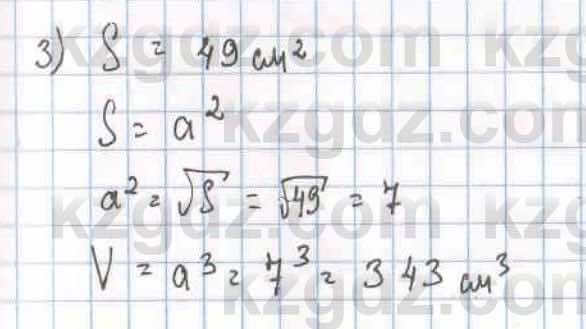 3) S = 49 см²
S = a²
a² = √S = √49 = 7
V = a³ = 7³ = 343 см³
kzgdz.com kzgdz.com
kzgdz.com
kzgdz.com